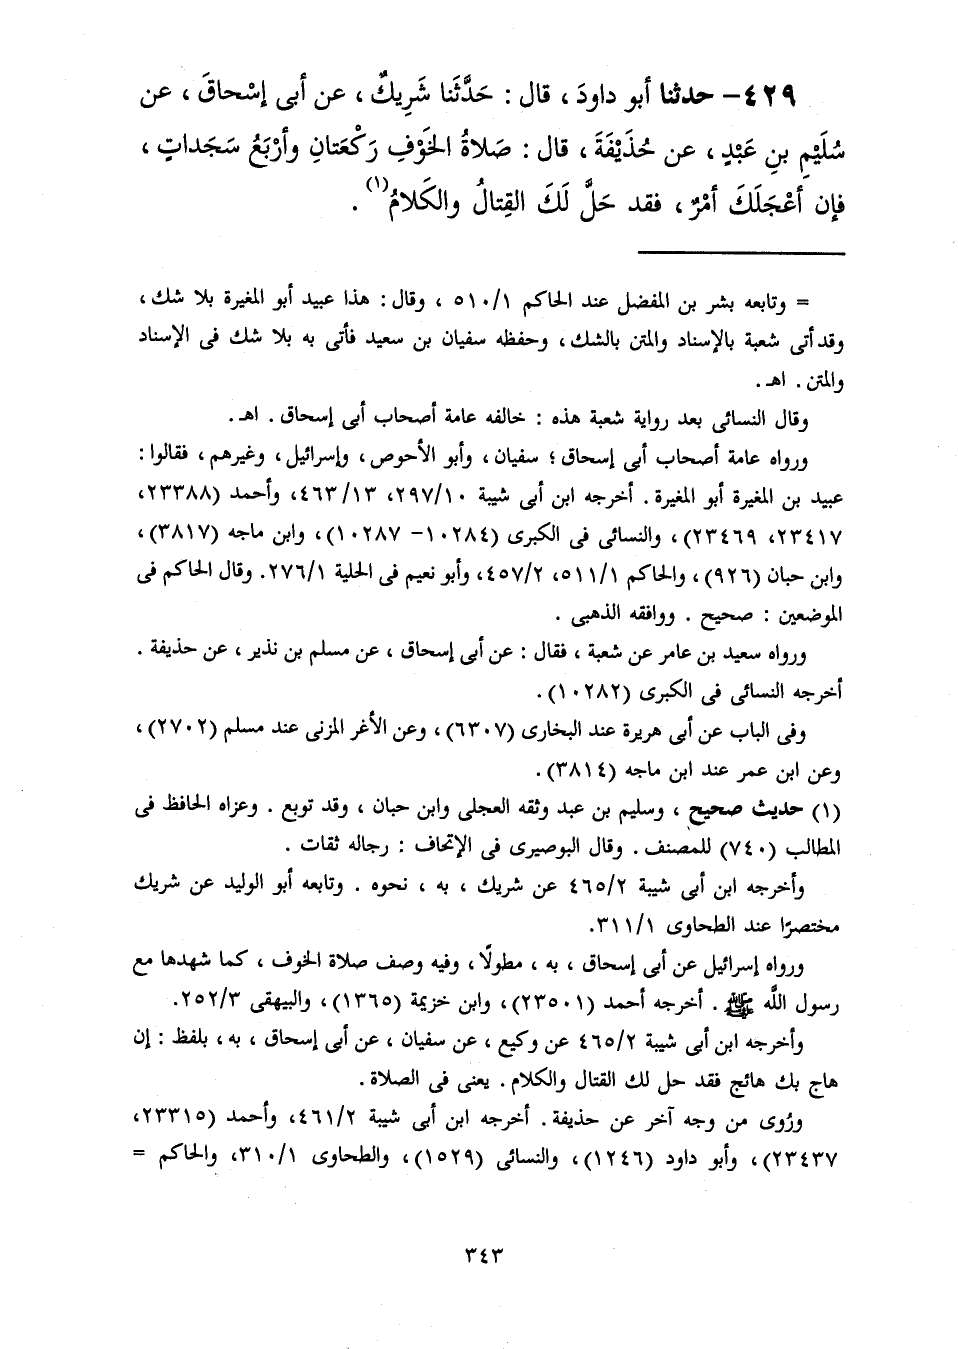 ٤٢٩- حدثنا أبو داودَ ، قال : حَدَّثَنا شَرِيكٌ ، عن أبى إسْحاقَ ، عن
سُلَيْمِ بنِ عَبْدٍ ، عن حُذَيْفَةَ ، قال : صَلاةُ الخَوْفِ رَكْعَتانِ وأرْبَعُ سَجَداتٍ ،
فإن أعْجَلَكَ أمْرٌ ، فقد حَلَّ لَكَ القِتالُ والكَلامُ(١) .
= وتابعه بشر بن المفضل عند الحاكم ٥١٠/١ ، وقال : هذا عبيد أبو المغيرة بلا شك ،
وقد أتى شعبة بالإسناد والمتن بالشك ، وحفظه سفيان بن سعيد فأتى به بلا شك فى الإسناد
والمتن . اهـ .
وقال النسائى بعد رواية شعبة هذه : خالفه عامة أصحاب أبى إسحاق . اهـ .
ورواه عامة أصحاب أبى إسحاق ؛ سفيان ، وأبو الأحوص ، وإسرائيل ، وغيرهم ، فقالوا :
عبيد بن المغيرة أبو المغيرة . أخرجه ابن أبى شيبة ٢٩٧/١٠، ٤٦٣/١٣، وأحمد (٢٣٣٨٨،
٢٣٤١٧، ٢٣٤٦٩)، والنسائى فى الكبرى (١٠٢٨٤- ١٠٢٨٧)، وابن ماجه (٣٨١٧)،
وابن حبان (٩٢٦)، والحاكم ٥١١/١، ٤٥٧/٢، وأبو نعيم فى الحلية ٢٧٦/١. وقال الحاكم فى
الموضعين : صحيح . ووافقه الذهبى .
ورواه سعيد بن عامر عن شعبة ، فقال : عن أبى إسحاق ، عن مسلم بن نذير ، عن حذيفة .
أخرجه النسائى فى الكبرى (١٠٢٨٢).
وفى الباب عن أبى هريرة عند البخارى (٦٣٠٧)، وعن الأغر المزنى عند مسلم (٢٧٠٢)،
وعن ابن عمر عند ابن ماجه (٣٨١٤).
(١) حديث صحيح ، وسليم بن عبد وثقه العجلى وابن حبان ، وقد توبع . وعزاه الحافظ فى
المطالب (٧٤٠) للمصنف . وقال البوصيرى فى الإتحاف : رجاله ثقات .
وأخرجه ابن أبى شيبة ٤٦٥/٢ عن شريك ، به ، نحوه . وتابعه أبو الوليد عن شريك
مختصرًا عند الطحاوى ٣١١/١.
ورواه إسرائيل عن أبى إسحاق ، به ، مطولًا ، وفيه وصف صلاة الخوف ، كما شهدها مع
رسول اللَّه ﷺ . أخرجه أحمد (٢٣٥٠١)، وابن خزيمة (١٣٦٥)، والبيهقى ٢٥٢/٣.
وأخرجه ابن أبى شيبة ٤٦٥/٢ عن وكيع ، عن سفيان ، عن أبى إسحاق ، به ، بلفظ : إن
هاج بك هائج فقد حل لك القتال والكلام . يعنى فى الصلاة .
ورُوى من وجه آخر عن حذيفة . أخرجه ابن أبى شيبة ٤٦١/٢، وأحمد (٢٣٣١٥،
٢٣٤٣٧)، وأبو داود (١٢٤٦)، والنسائى (١٥٢٩)، والطحاوى ٣١٠/١، والحاكم =
٣٤٣